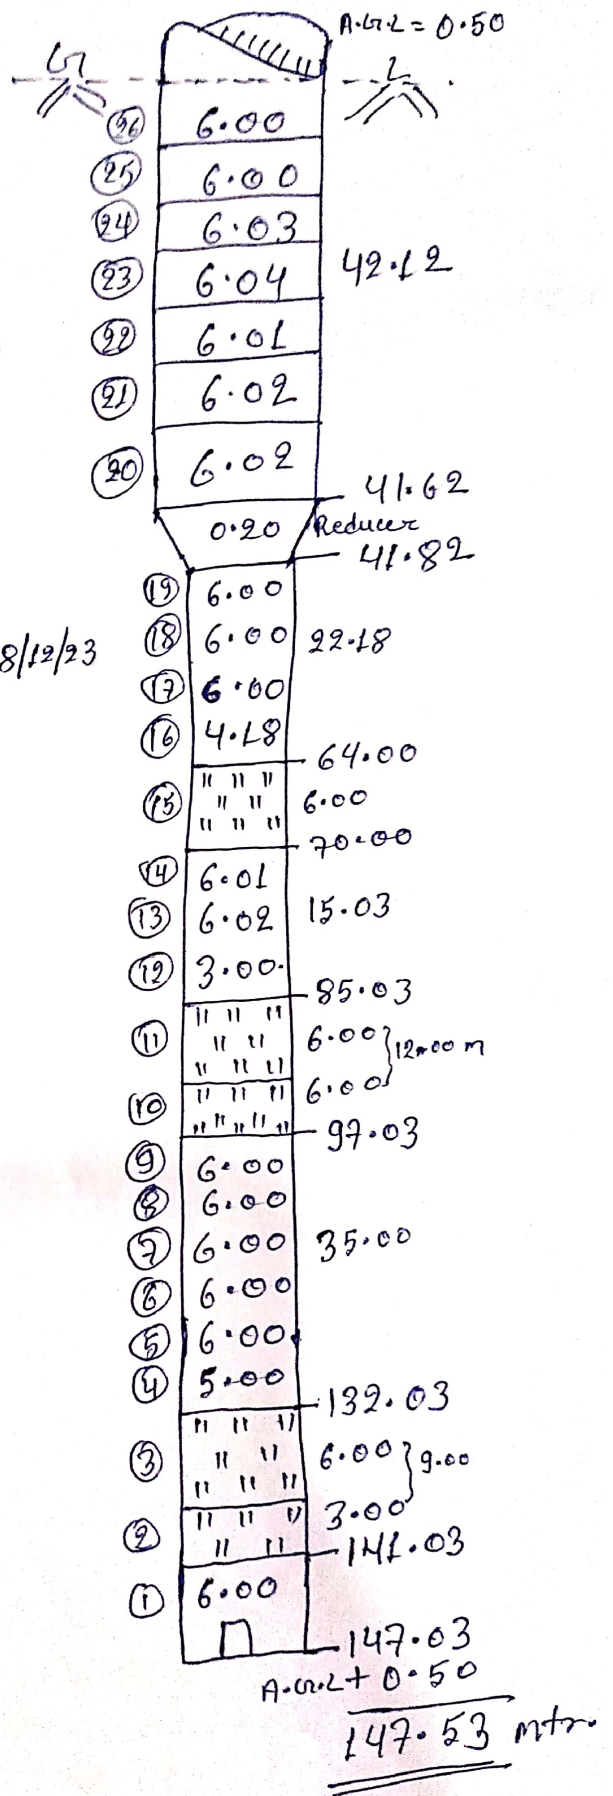 A.G.L = 0.50
G L
26 6.00
25 6.00
24 6.03
23 6.04 42.12
22 6.01
21 6.02
20 6.02
41.62
0.20 Reducer
41.82
19 6.00
18 6.00 22.18
8/12/23
17 6.00
16 4.18
64.00
15 6.00
70.00
14 6.01
13 6.02 15.03
12 3.00
85.03
11 6.00
12.00 m
10 6.00
97.03
9 6.00
8 6.00
7 6.00 35.00
6 6.00
5 6.00
4 5.00
132.03
3 6.00
9.00
2 3.00
141.03
1 6.00
147.03
A.G.L + 0.50
147.53 mtr.